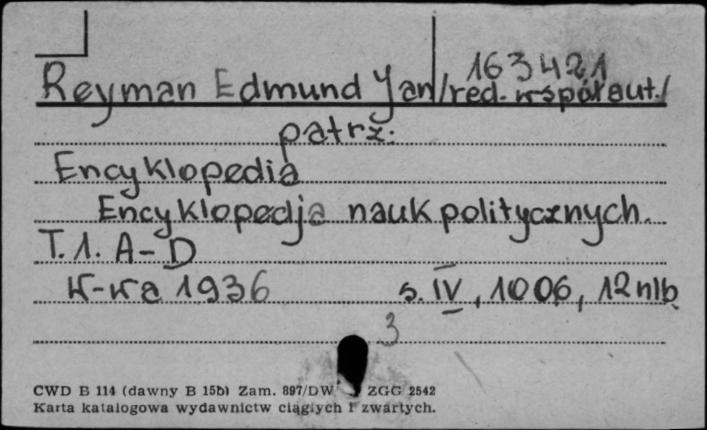 163421
Reyman Edmund Jan /red. współaut./
patrz:
Encyklopedia
Encyklopedja nauk politycznych.
T. 1. A-D
W-wa 1936 s. IV, 1006, 12 nlb
3
CWD B 114 (dawny B 15b) Zam. 897/DW ZGG 2542
Karta katalogowa wydawnictw ciągłych i zwartych.